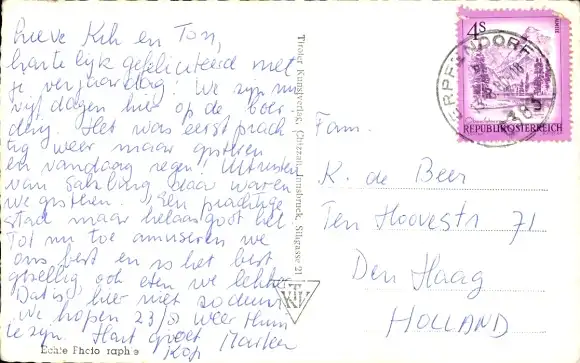 Lieve Kih en Ton,
hartelijk gefeliciteerd met
je verjaardag! We zijn nu
vijf dagen hier op de boer
derij. Het was eerst prach
tig weer maar gisteren
en vandaag regen! Uitrusten
van Salzburg daar waren
we gisteren. Een prachtige
stad maar helaas goot het.
Tot nu toe amuseren we
ons best en is het best
gezellig ook eten we lekker
Dat is hier niet zo duur
We hopen 23/8 weer thuis
te zijn. Hart. groet Marleen
Kop
Echte Photographie
Tiroler Kunstverlag, Chizzali, Innsbruck, Sillgasse 21
TKV
4S
REPUBLIK ÖSTERREICH
ERPFENDORF
6383
Fam.
K. de Beer
Ten Hoovestr 71
Den Haag
HOLLAND